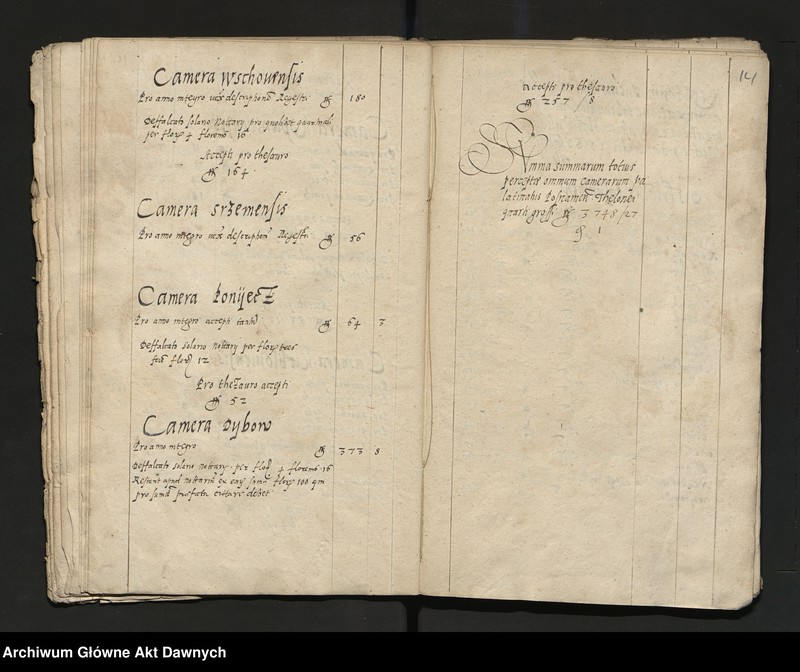 Camera wschovensis
Pro anno integro iuxta descriptione Regestri 180
Deffalcato solario Nottary pro quolibet quartuali
per flor 4 florenos 16
Accepti pro thesauro
164
Camera srzemensis
Pro anno integro iuxta descriptione Regestri 56
Camera Ponijecz
Pro anno integro accepti tantum 64 3
Deffalcato solario Nottary per flor tres
flor 12
Pro thezauro accepti
52
Camera Dybow
Pro anno integro 373 8
Deffalcato solario nottary per flor 4 florenos 16
Restant apud nottarium ex eas summa flor 100 qm
pro summa debet
141
accepti pro thesauro
257 /8
Summa summarum totius
perceptae omnium camerarum pa
latinatus Posnanien Thelonei
quarti grossi 3748/27
1
Archiwum Główne Akt Dawnych